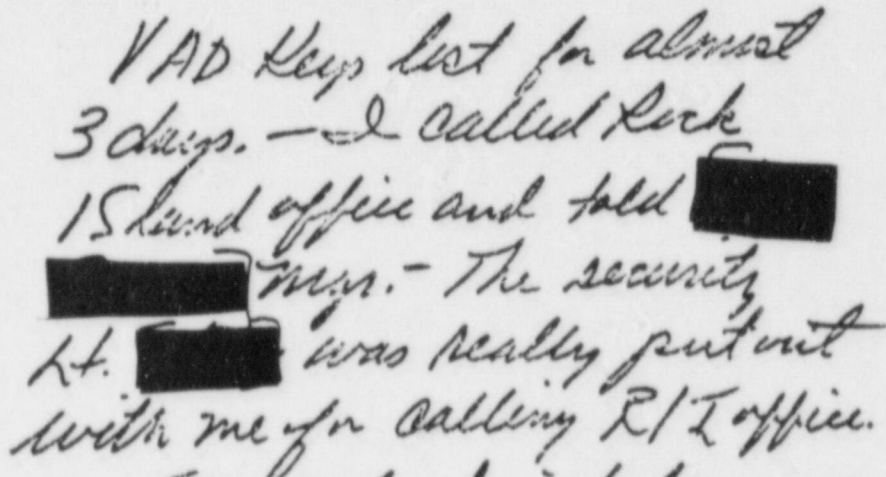 VAD Keys lost for almost
3 days. — I called Rock
ISland office and told
mgr. - The security
Lt. was really put out
with me for calling R/I office.